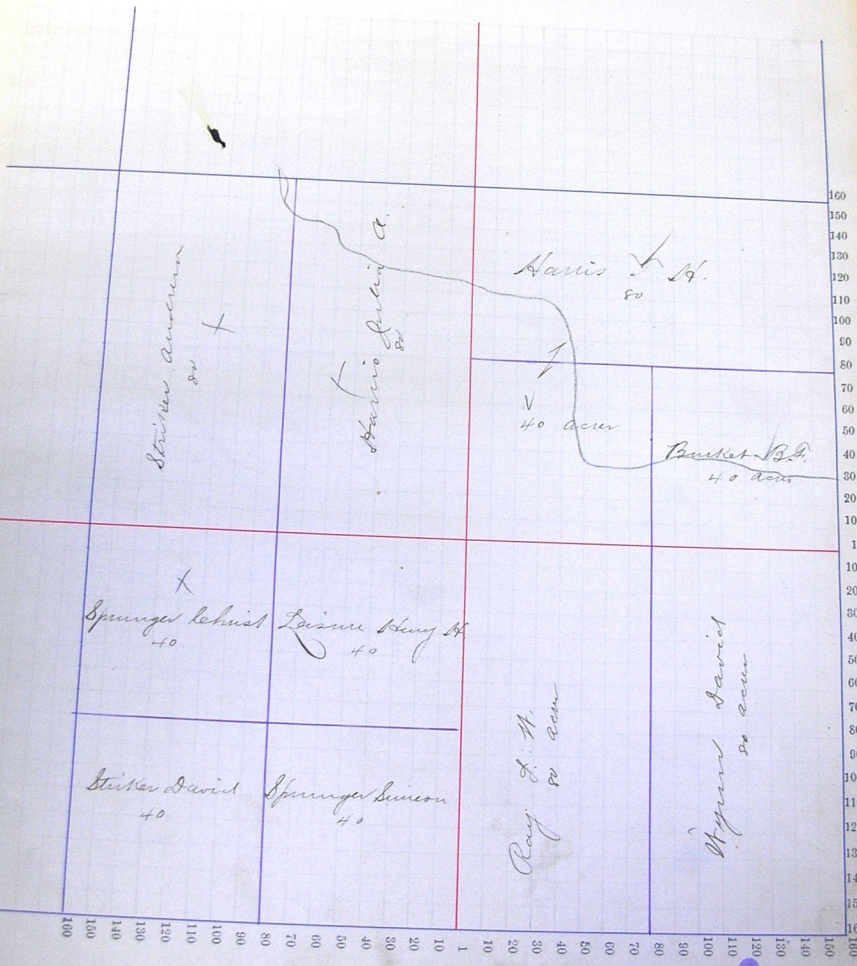 Striker Andrew
80
Harris Julia A.
80
Harris F. H.
80
40 acres
Burket B.F.
40 acres
Sprunger Christ
40
Leisure Henry H
40
Striker David
40
Sprunger Simeon
40
Ray L. W.
80 acres
Wynn David
80 acres
160
150
140
130
120
110
100
90
80
70
60
50
40
30
20
10
1
10
20
30
40
50
60
70
80
90
10
11
12
13
14
15
16
160 150 140 130 120 110 100 90 80 70 60 50 40 30 20 10 1 10 20 30 40 50 60 70 80 90 100 110 120 130 140 150 160